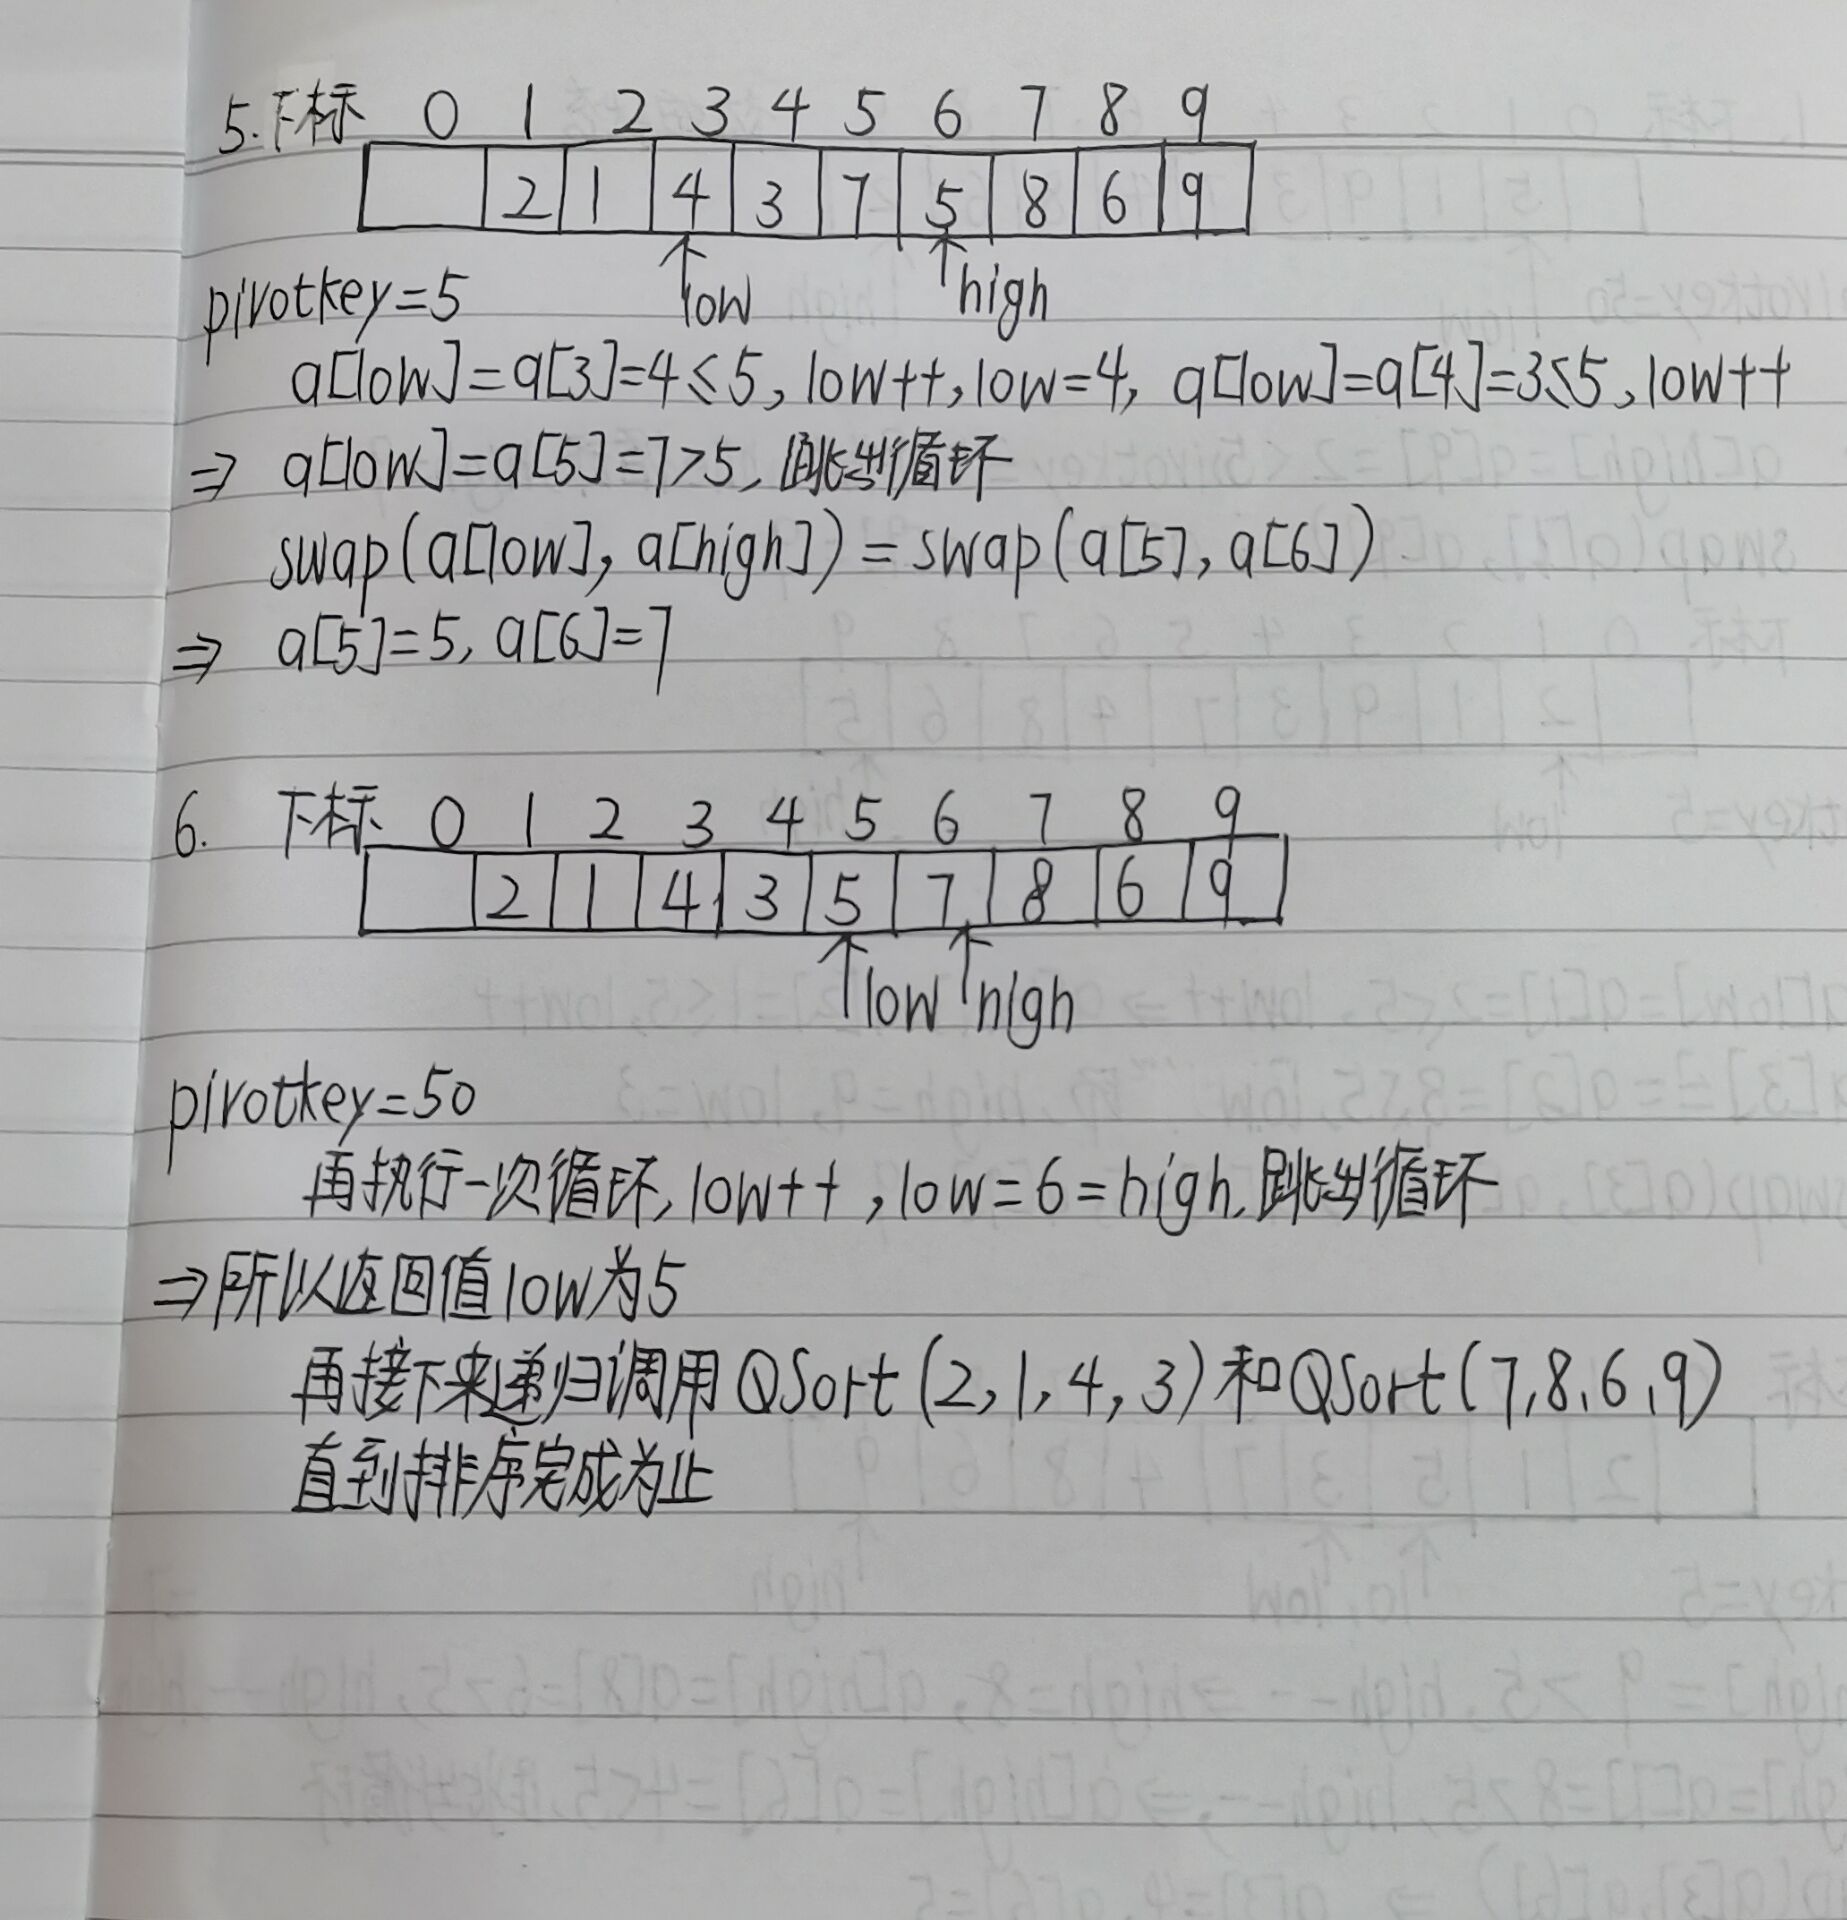 5.下标 0 1 2 3 4 5 6 7 8 9
2 1 4 3 7 5 8 6 9
low high
pivotkey=5
a[low]=a[3]=4≤5,low++,low=4, a[low]=a[4]=3≤5,low++
⇒ a[low]=a[5]=7>5,跳出循环
swap(a[low], a[high])=swap(a[5],a[6])
⇒ a[5]=5,a[6]=7
6. 下标 0 1 2 3 4 5 6 7 8 9
2 1 4 3 5 7 8 6 9
low high
pivotkey=50
再执行一次循环,low++,low=6=high.跳出循环
⇒所以返回值low为5
再接下来递归调用QSort(2,1,4,3)和QSort(7,8,6,9)
直到排序完成为止